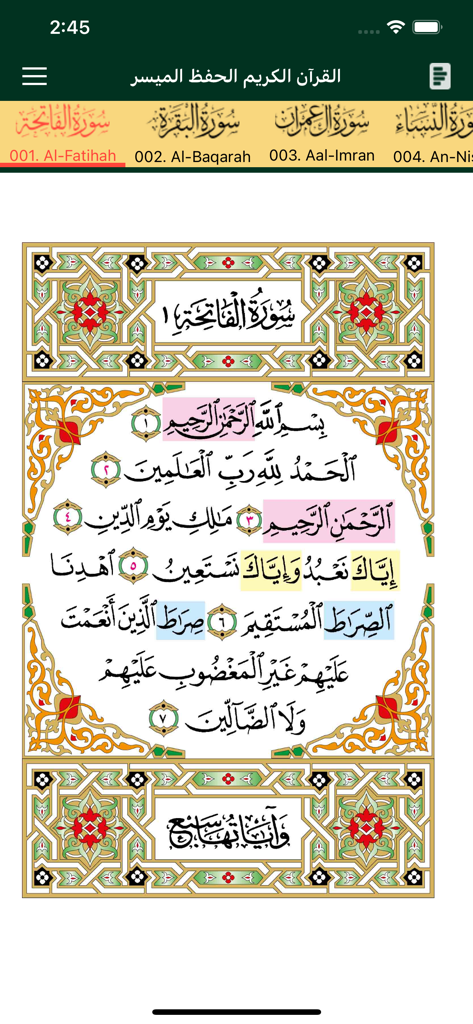 2:45
القرآن الكريم الحفظ الميسر
سورة الفاتحة
سورة البقرة
سورة آل عمران
سورة النساء
001. Al-Fatihah
002. Al-Baqarah
003. Aal-Imran
004. An-Nis
سُورَةُ الْفَاتِحَةِ ١
بِسْمِ ٱللَّهِ ٱلرَّحْمَٰنِ ٱلرَّحِيمِ ١
ٱلْحَمْدُ لِلَّهِ رَبِّ ٱلْعَٰلَمِينَ ٢
ٱلرَّحْمَٰنِ ٱلرَّحِيمِ ٣ مَٰلِكِ يَوْمِ ٱلدِّينِ ٤
إِيَّاكَ نَعْبُدُ وَإِيَّاكَ نَسْتَعِينُ ٥ ٱهْدِنَا
ٱلصِّرَٰطَ ٱلْمُسْتَقِيمَ ٦ صِرَٰطَ ٱلَّذِينَ أَنْعَمْتَ
عَلَيْهِمْ غَيْرِ ٱلْمَغْضُوبِ عَلَيْهِمْ
وَلَا ٱلضَّآلِّينَ ٧
وَآيَاتُهَا سَبْعٌ